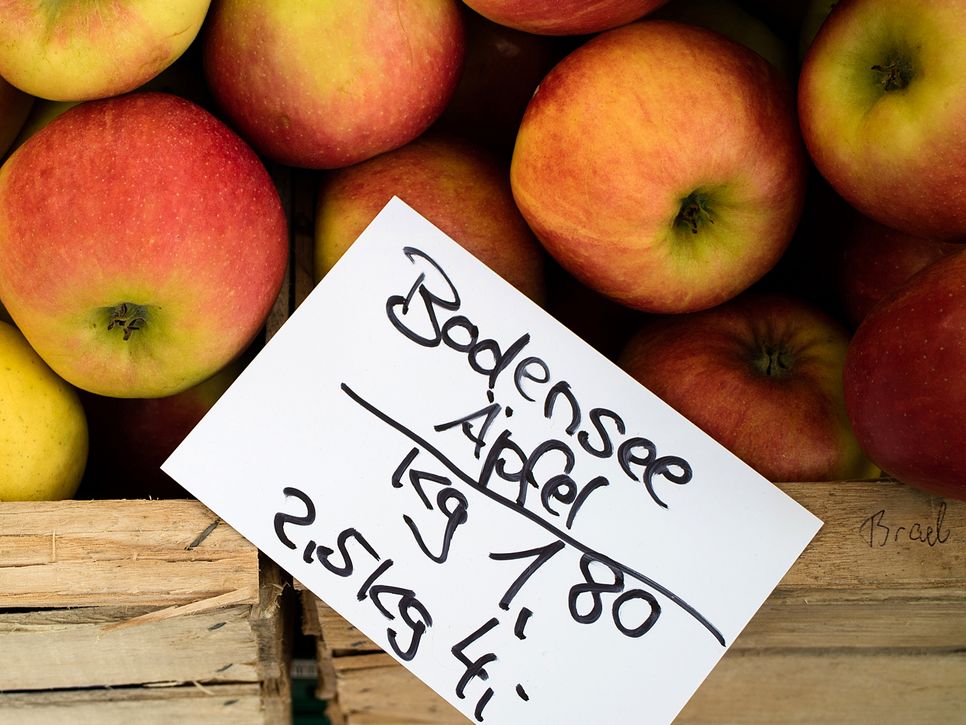 Bodensee
Äpfel
kg 1,80
2,5kg 4,-
Brael